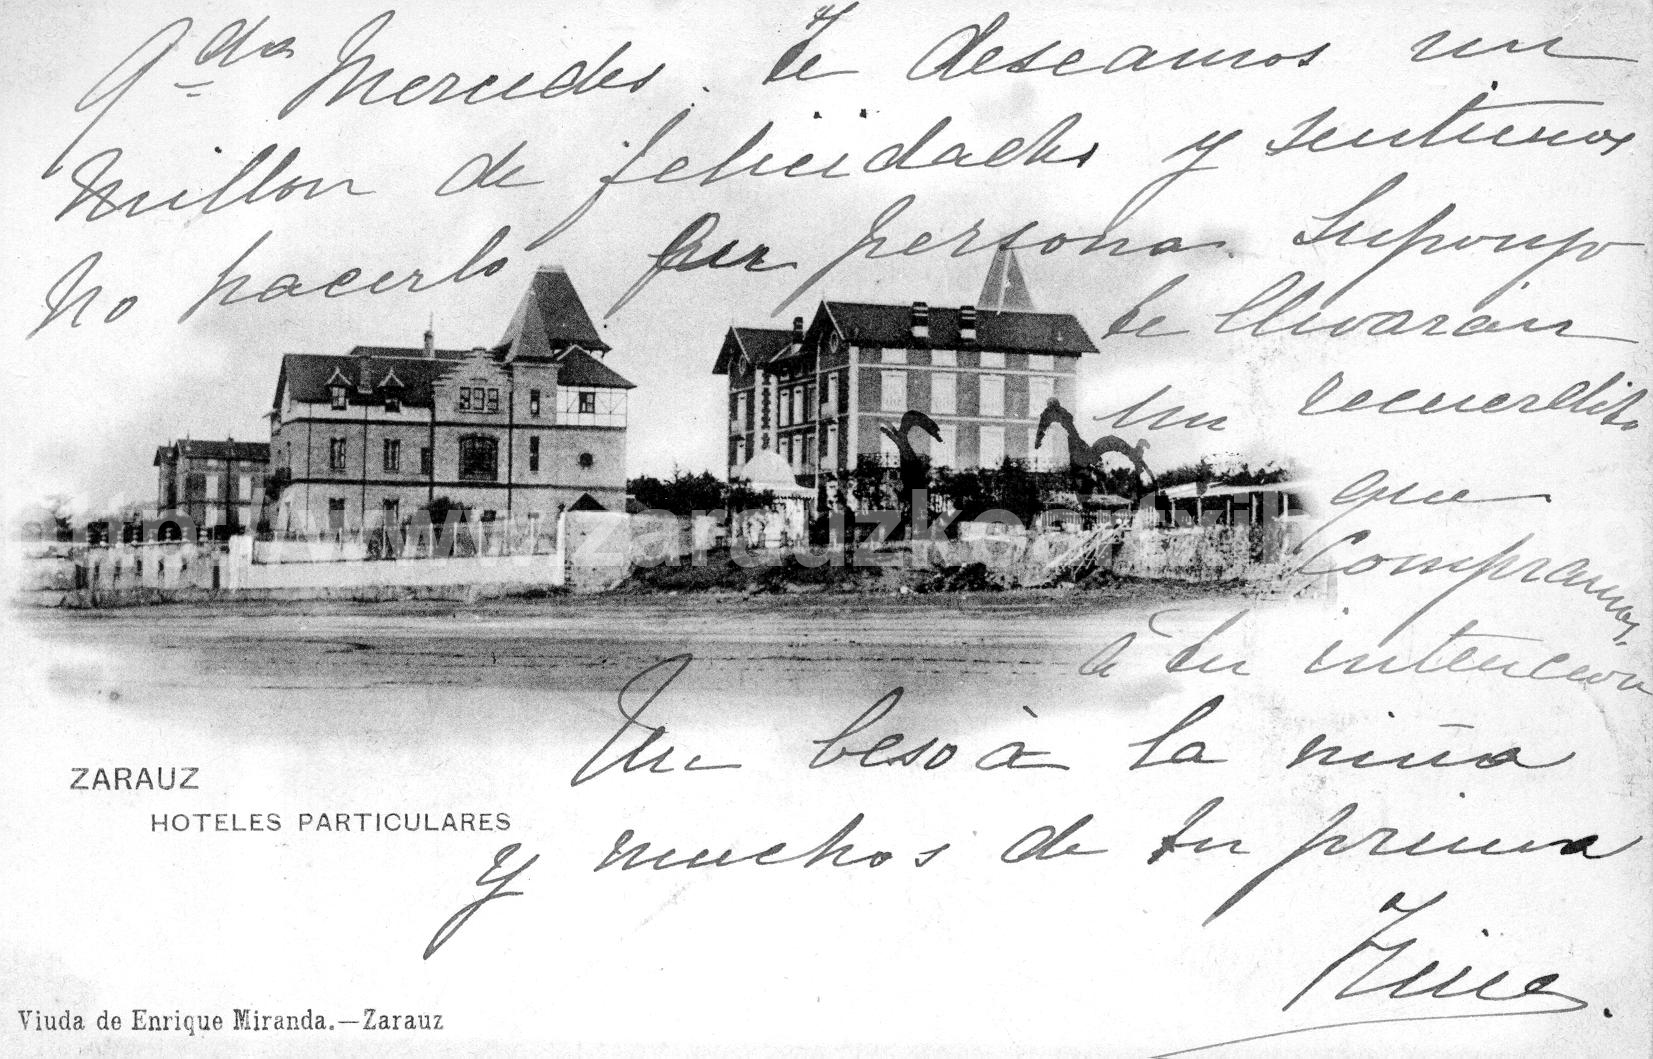 Qda Mercedes. Te deseamos un
millon de felicidades y sentimos
no hacerlo en persona. Supongo
te llevarán
un recuerdito
que
compramos
á tu intencion
Un beso à la niña
y muchos de tu prima
ZARAUZ
HOTELES PARTICULARES
Viuda de Enrique Miranda.—Zarauz